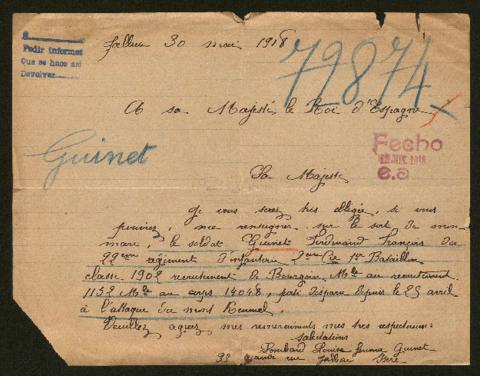 Pedir informes
Que se hace así
Devolver
Jallieu 30 mai 1918
79874
A sa Majesté le Roi d'Espagne
Guinet
Fecho
JUN. 1918
e.a
Sa Majesté
Je vous serez très obligée, si vous
pouviez me renseigner sur le sort de mon
mari, le soldat Guinet Ferdinand François du
22ème régiment d'infanterie 2ème Cie 1er Bataillon
classe 1902 recrutement de Bourgoin Mle au recrutement
1152 Mle au corps 14048, porté disparu depuis le 25 avril
à l'attaque du mont Kemmel.
Veuillez agréer mes remerciements mes très respectueuses
salutations
Louise Guinet
rue Jallieu Isère